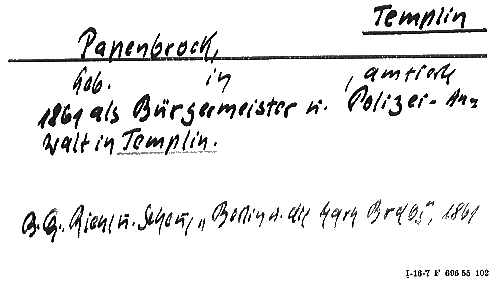 Templin
Papenbrock,
Geb. in , amtiert
1861 als Bürgermeister u. Polizei-An-
walt in Templin.
B. G. Riehl u. Scheu, „Berlin u. die Mark Brdbg", 1861
I-16-7 F 696 55 102